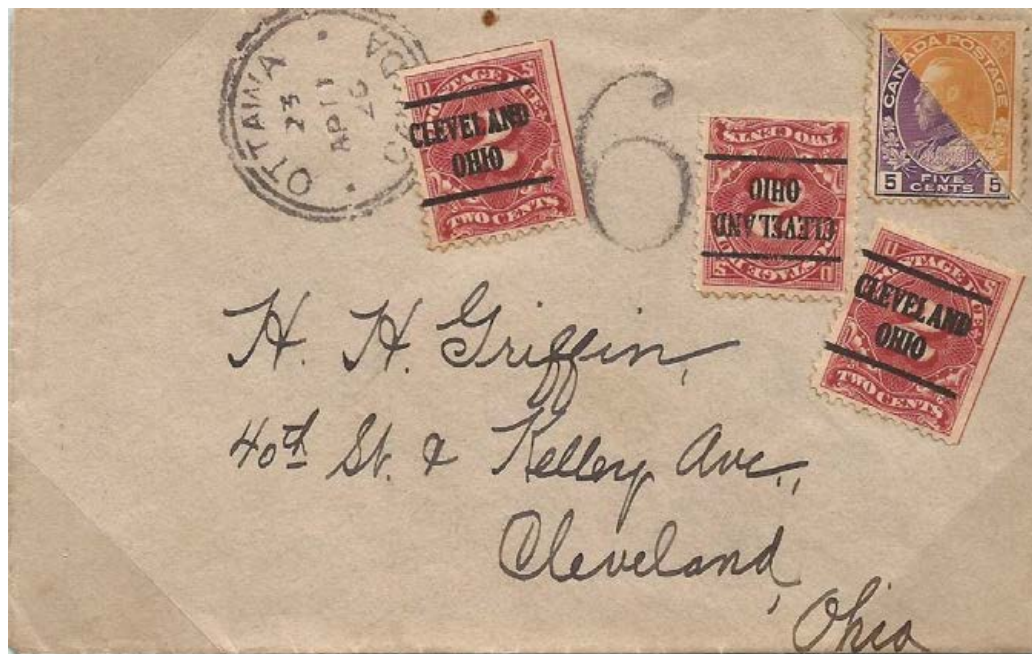 OTTAWA
23
AP 11
26
CANADA
U S
POSTAGE DUE
CLEVELAND
OHIO
TWO CENTS
6
U S
POSTAGE DUE
CLEVELAND
OHIO
TWO CENTS
CANADA POSTAGE
5 FIVE CENTS 5
U S
POSTAGE DUE
CLEVELAND
OHIO
TWO CENTS
H. H. Griffin,
40th St. & Kelley Ave.,
Cleveland,
Ohio